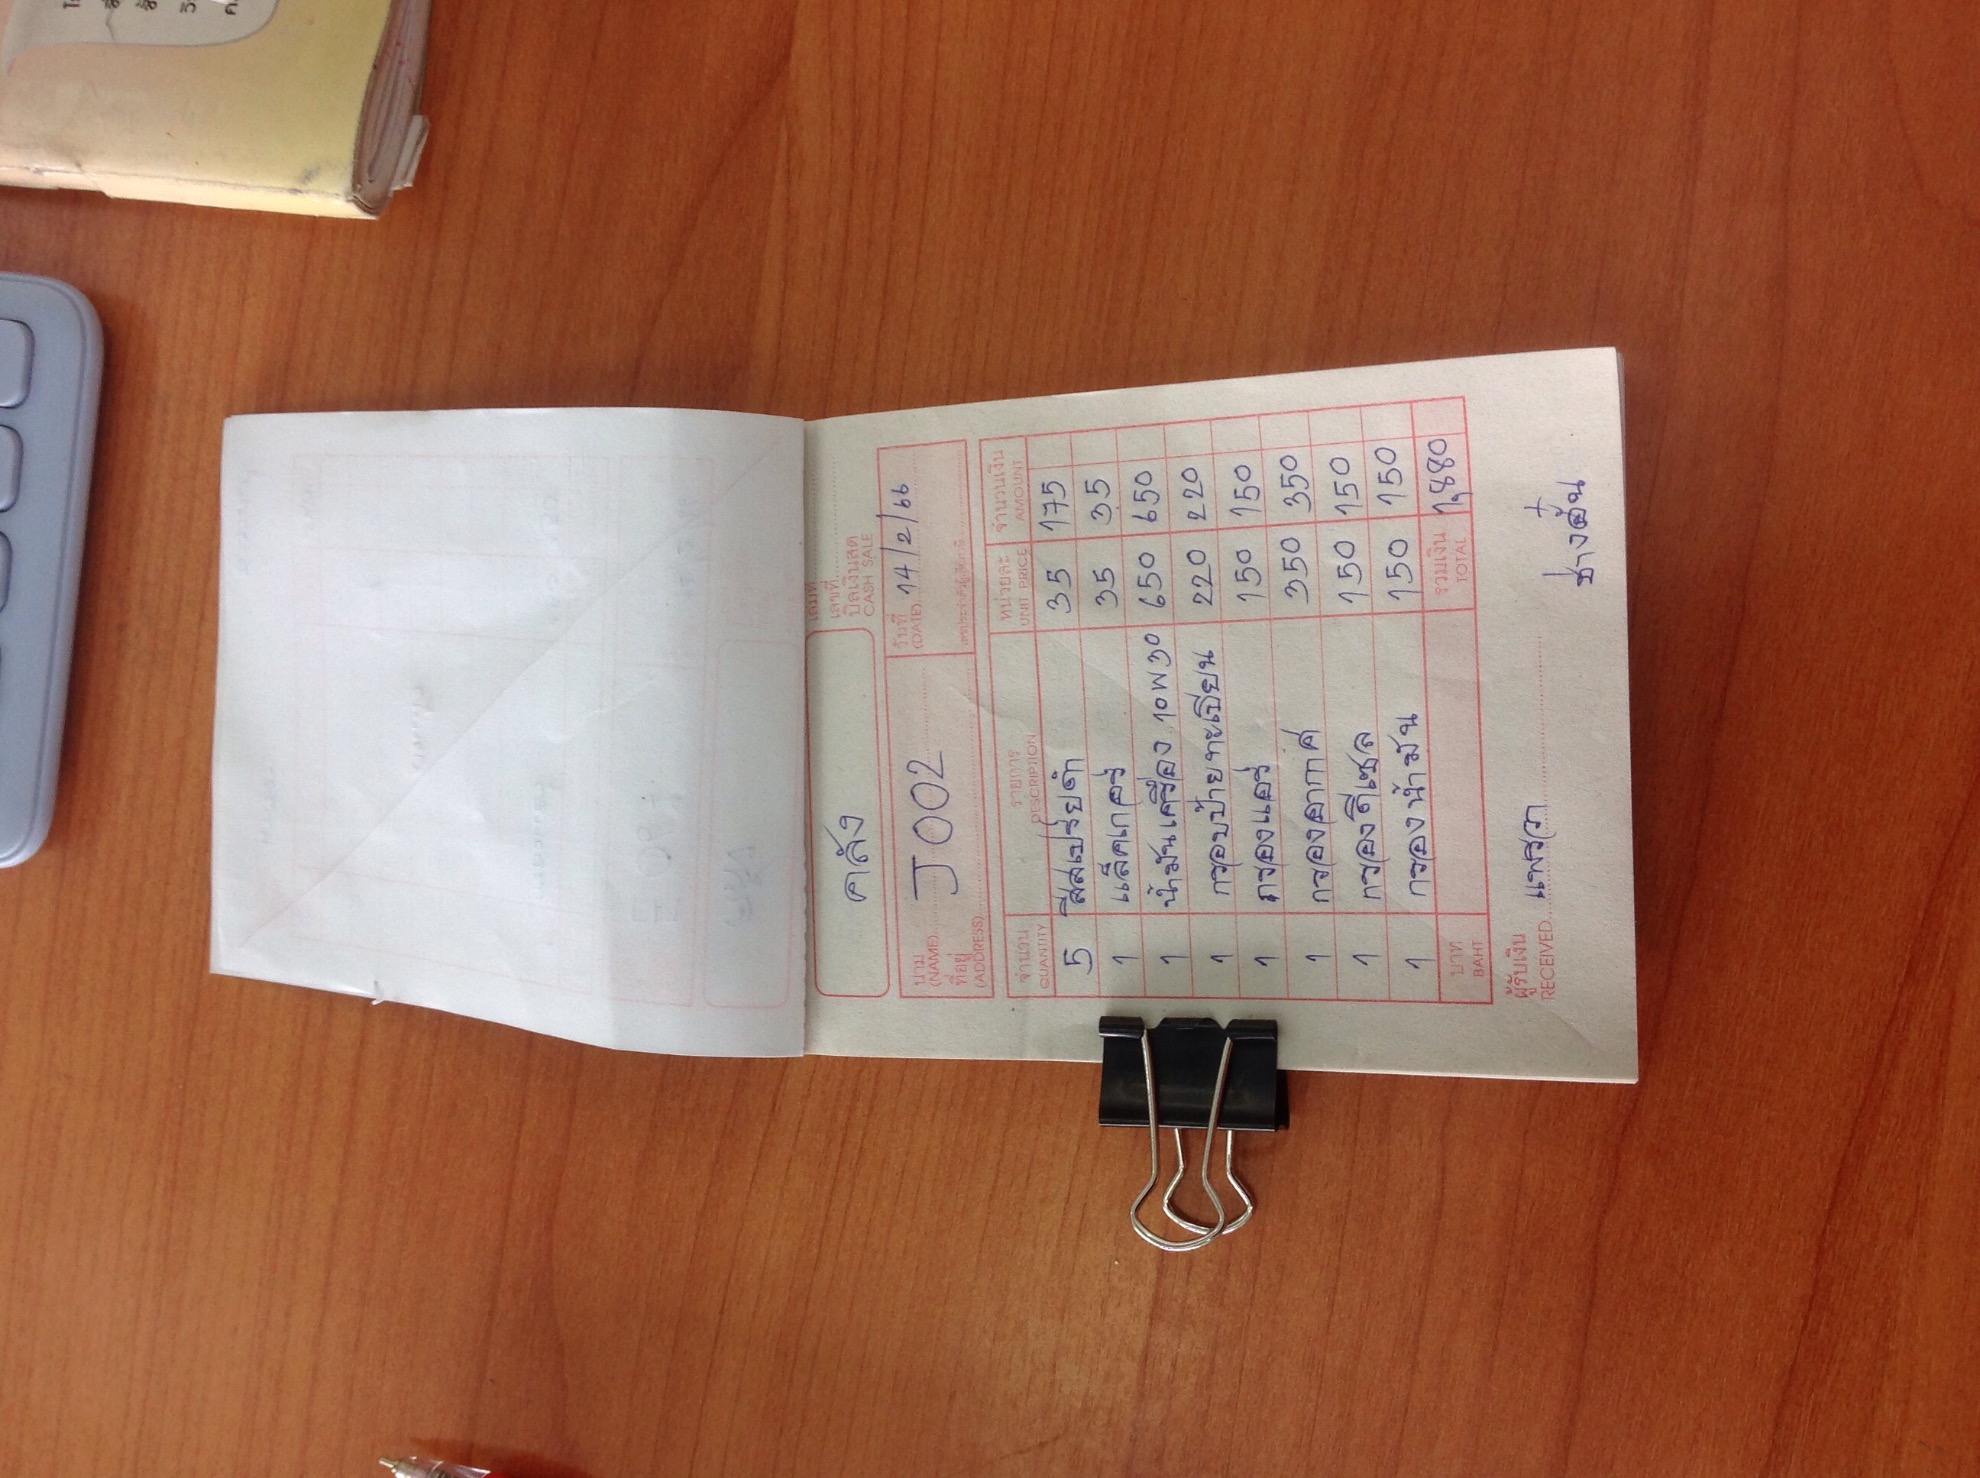 เล่มที่
เลขที่
บิลเงินสด
CASH SALE
คลัง
นาม (NAME) J002
วันที่ (DATE) 14/2/66
ที่อยู่ (ADDRESS)
จำนวน รายการ หน่วยละ จำนวนเงิน
QUANTITY DESCRIPTION UNIT PRICE AMOUNT
5 สีสเปรย์ดำ 35 175
1 แล็คเกอร์ 35 35
1 น้ำมันเครื่อง 10W30 650 650
1 กรอบป้ายทะเบียน 220 220
1 กรองแอร์ 150 150
1 กรองอากาศ 350 350
1 กรองดีเซล 150 150
1 กรองน้ำมัน 150 150
บาท รวมเงิน 1,880
BAHT TOTAL
ผู้รับเงิน
RECEIVED แพรวา
ช่างอั๋น